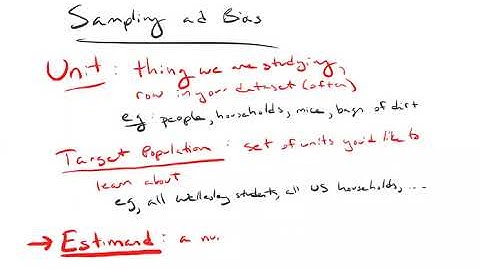 Sampling ad Bias
Unit : thing we are studying,
row in your dataset (often)
eg: people, households, mice, bags of dirt
Target Population : set of units you'd like to
learn about
eg, all Wellesley students, all US households, ...
→ Estimand : a nu